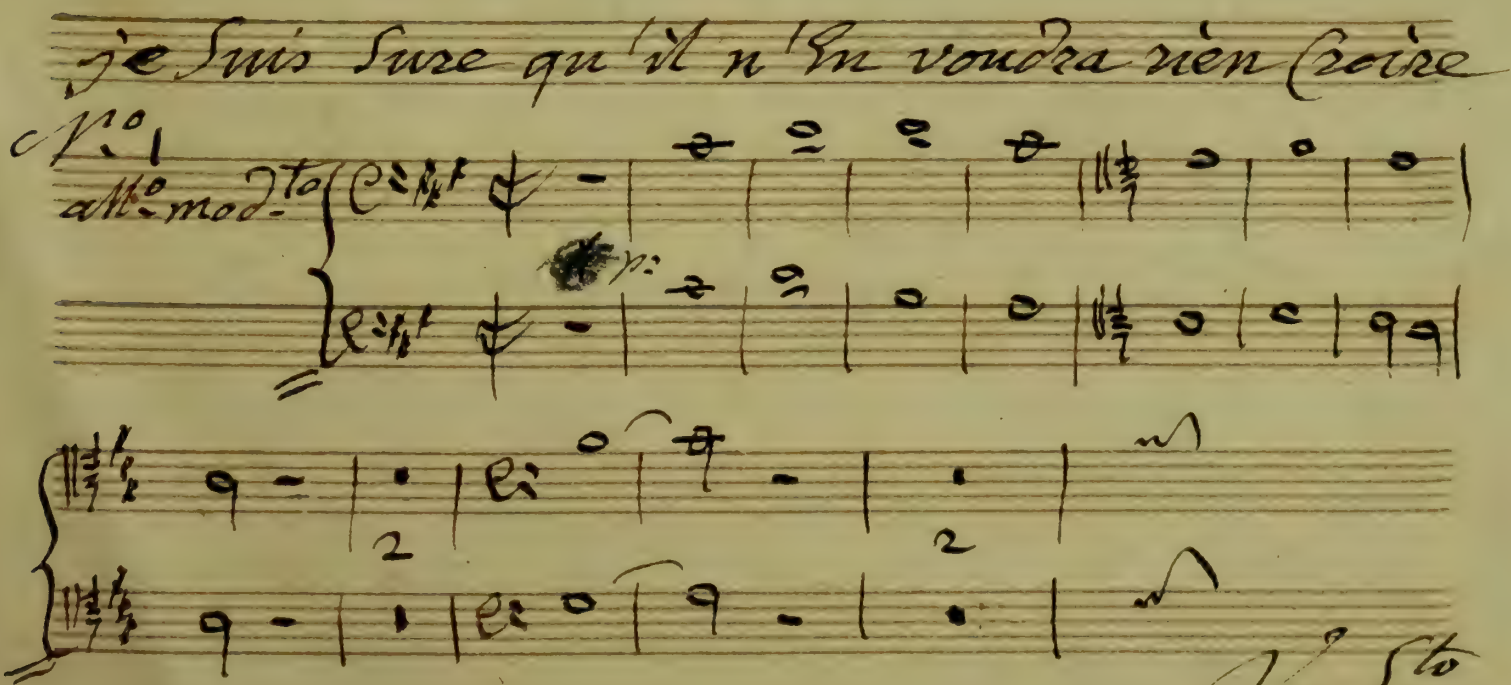 je suis sure qu'il n'en voudra rien Croire
N.º 1
all.º mod.to
p:
2
2
V Sto